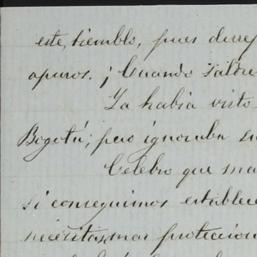 este, tiemblo, pues
apuros. ¡Cuando
Ya habia visto
Bogotá; pero ignoraba su
Celebro que
si conseguimos establece
necesitas mas proteccion